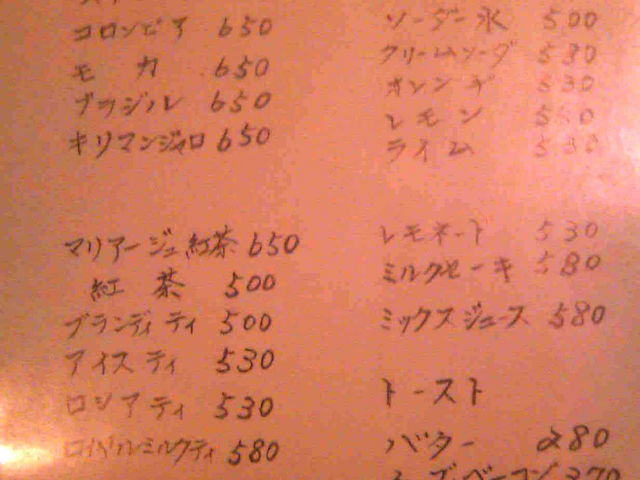 コロンビア 650
モカ 650
ブラジル 650
キリマンジャロ 650
マリアージュ紅茶 650
紅茶 500
ブランディティ 500
アイスティ 530
ロシアティ 530
ロイヤルミルクティ 580
ソーダー水 500
クリームソーダ 580
オレンヂ 530
レモン
ライム 530
レモネート 530
ミルクセーキ 580
ミックスジュース 580
トースト
バター 280
370